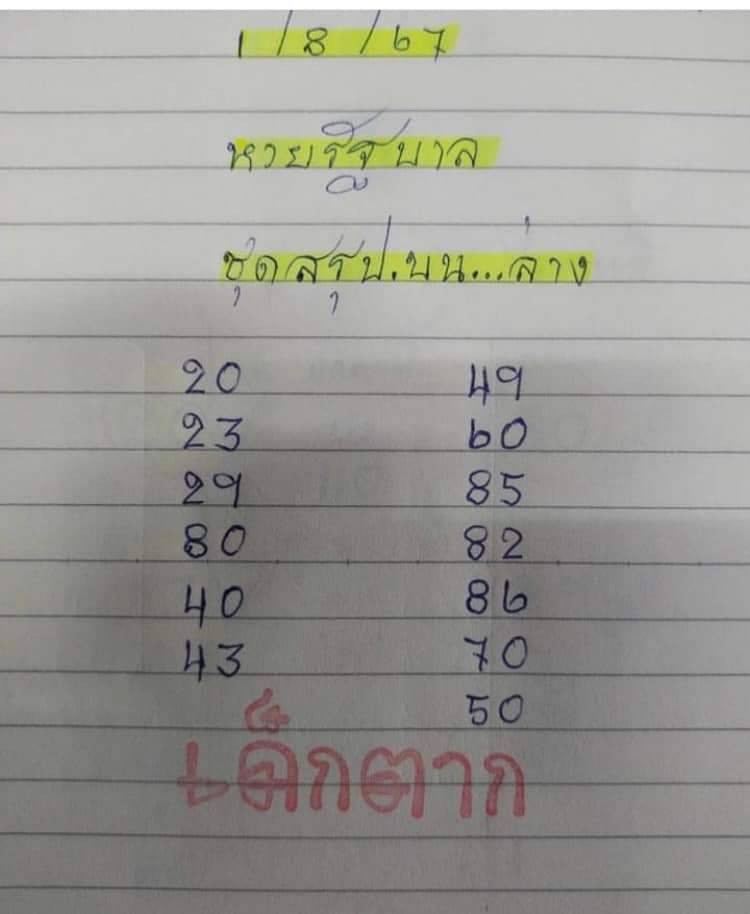 1/8/67
หวยรัฐบาล
ชุดสรุป.บน...ล่าง
20 49
23 60
29 85
80 82
40 86
43 70
50
เด็กตาก